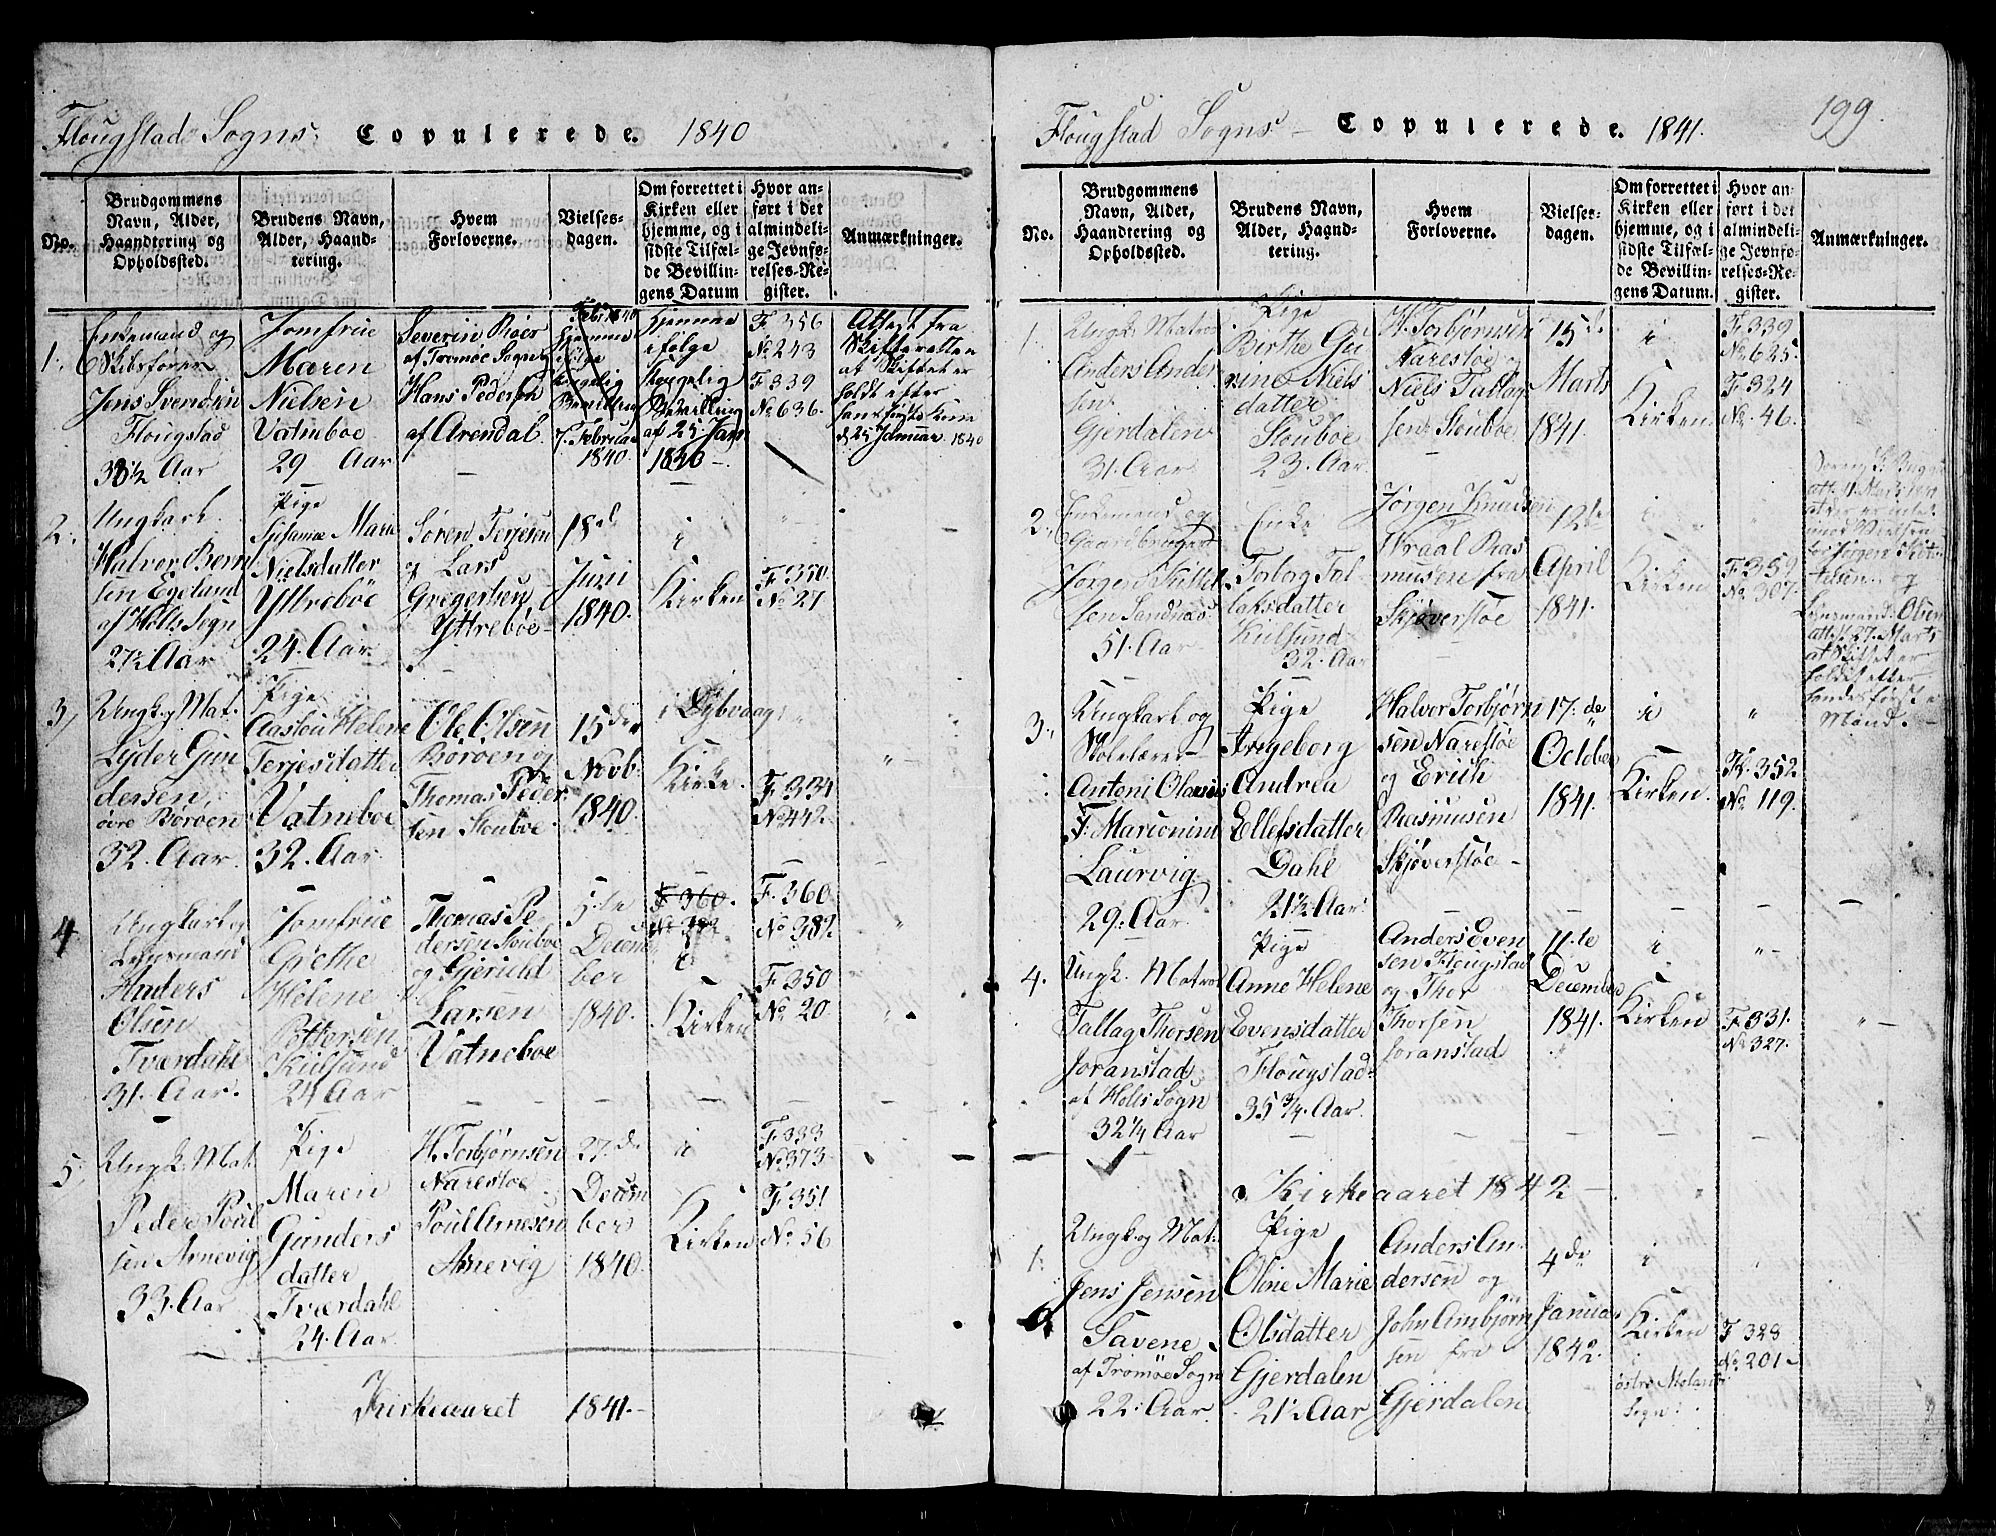 Flougstad Sogns Copulerede. 1840
No.
Brudgommens
Navn, Alder,
Haandtering og
Opholdssted.
Brudens Navn,
Alder, Haand-
tering.
Hvem
Forloverne.
Vielses-
dagen.
Om forrettet i
Kirken eller
hjemme, og i
sidste Tilfæl-
de Bevillin-
gens Datum
Hvor an-
ført i det
almindeli-
ge Jevnfø-
relses-Re-
gister.
Anmærkninger.
1.
Enkemand og
Skibsfører
Jens Svendsen
Flougstad
38½ Aar
Jomfrue
Maren
Nielsen
Vatneboe
29 Aar
Severin Röer
af Tromøe Sogn
Hans Pedersen
af Arendal
7. Februar
1840.
Hjemme
ifølge
kongelig
Bevilling
af 25. Jan
1840
F. 356
No. 243
F. 339
No. 636.
Attest fra
Skifteretten
at Skiftet er
holdt efter
d. 25 Januar 1840
2.
Ungkarl
Halvor Bern
sen Egeland
af Holts Sogn
27½ Aar
Pige
Susanne Marie
Nielsdatter
Yttreböe
24. Aar
Søren Terjesen
og Lars
Gregersen
Yttreböe
18de
Juni
1840.
i
Kirken
F. 350
No. 27
3.
Ungk. og Mat.
Lyder Gun
dersen,
øvre Boroen
32. Aar
Pige
Aaslou Helene
Terjesdatter
Vatneboe
32. Aar
Ole Olsen
Böröen og
Thomas Peder
sen Stouboe
15de
Novb
1840.
i Dybvaag
Kirke.
F. 334
No. 442.
4
Ungkarl og
Lensmand
Anders
Olsen
Tverdahl
31. Aar.
Jomfrue
Grethe
Helene
Pettersen
Kilsund
24 Aar
Thomas Pe
dersen Stouboe
og Gjeruld
Larsen
Vatneboe
5.te
Decem
ber
1840.
F. 360.
No. 382
i
Kirken
F. 360
No. 382.
F. 350
No. 20
5.
Ungk. Mat.
Peder Poul
sen Arnevig
33. Aar
Pige
Maren
Gunders
datter
Tværdahl
24. Aar.
H. Torbjørnsen
Narestoe
Poul Arnesen
Arnevig
27.de
Decem
ber
1840.
i
Kirken
F. 333
No. 373
F. 351
No. 56
Kirkeaaret 1841.
Flougstad Sogns Copulerede. 1841.
199.
No.
Brudgommens
Navn, Alder,
Haandtering og
Opholdssted.
Brudens Navn,
Alder, Haand-
tering.
Hvem
Forloverne.
Vielses-
dagen.
Om forrettet i
Kirken eller
hjemme, og i
sidste Tilfæl-
de Bevillin-
gens Datum.
Hvor an-
ført i det
almindeli-
ge Jevnfø-
relses-Re-
gister.
Anmærkninger.
1.
Ungk. Matros
Anders Ander
sen
Gjerdalen
31. Aar
Pige
Birthe Gu
rine Niels
datter
Stouboe
23. Aar
H. Torbjørnsen
Narestoe og
Niels Tallag
sen Stouboe
15de
Marts
1841.
i
Kirken
F. 339
No. 625.
F. 324
No. 46.
2.
Enkemand og
Gaardbruger
Jørgen Kittel
sen Sandnæs
51. Aar
Enke
Torborg Tal
laksdatter
Kilsund
32. Aar
Jørgen Knudsen
Wraal Ras
musen fra
Skjøverstøe
12te
April
1841.
i
Kirken
F. 359
No. 307.
Lensmand Olsen
att. 27. Marts
at Skiftet er
holdet efter
Mand.
3.
Ungkarl og
Skolelærer
Antoni Olaves
F. Marionini
Laurvig
29. Aar
Pige
Ingeborg
Andrea
Ellefsdatter
Dahl
21½ Aar
Halvor Torbjørn
sen Narestøe
og Erich
Rasmusen
Skjøverstøe
17.de
October
1841.
i
Kirken.
F. 352
No. 119.
4.
Ungk. Matros
Tallag Thorsen
Joranstad
af Holts Sogn
32¼ Aar
Pige
Anne Helene
Evensdatter
Flougstad
35¾ Aar
Anders Even
sen Flougstad
og Thor
Thorsen
Joranstad
11.te
December
1841.
i
Kirken
F. 331.
No. 327.
Kirkeaaret 1842
1.
Ungk. og Mat.
Jens Jensen
Savene
af Tromöe Sogn
22. Aar
Pige
Oline Marie
Olsdatter
Gjerdalen
21½ Aar
Anders An
dersen og
John Ambjørn
sen fra
Gjerdalen
4de
Januar
1842.
i
Kirken
østre Moland
Sogn
F 328
No. 201